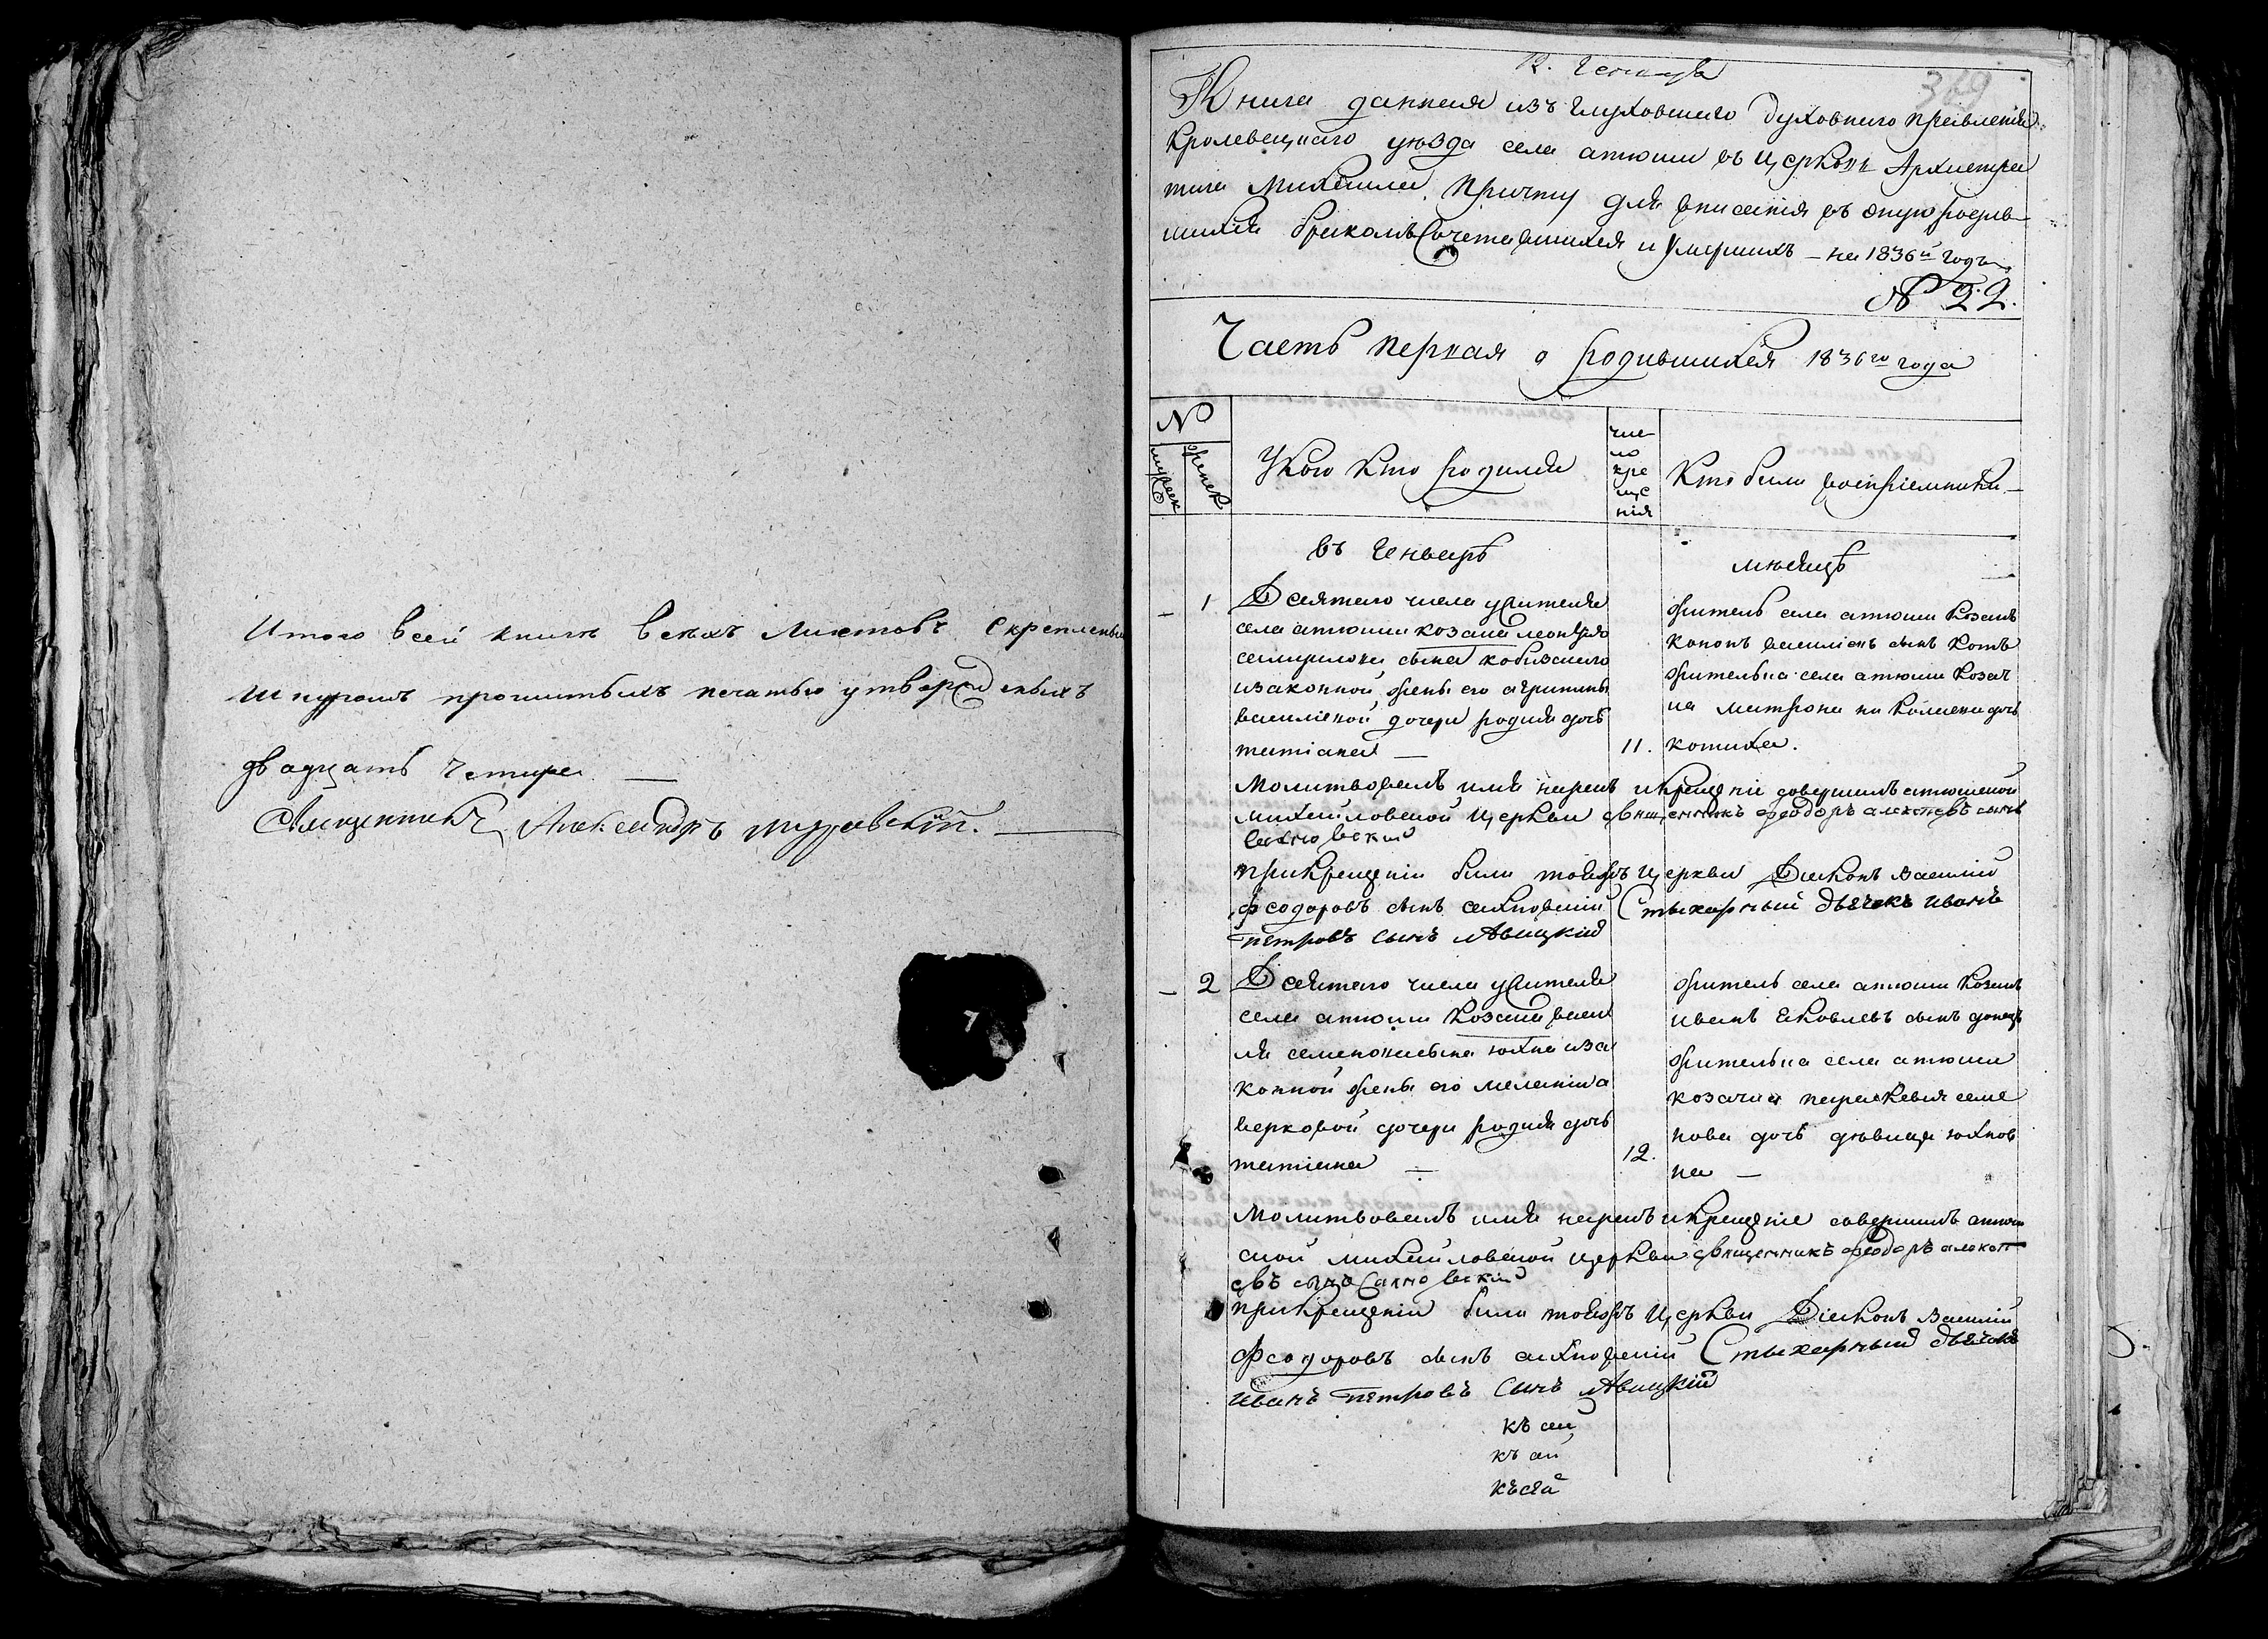 Итого всей книги всехъ листовъ скрепленныхъ
шнуромъ прошитыхъ печатью утвержденыхъ
двадцать четыре —
Священникъ Александръ —
369
Книга данная изъ Глуховского Духовного правленія
Кролевецкого уезда села атюши въ Церковь Архистра
тига Михаила Причту для вписанія въ оную родив-
шихся бракомъ Сочетавшихся и Умершихъ – на 1836й годъ
№ 22.
Часть первая о родившихся 1836го года
№
мужеск
женск
У кого кто родился
чис-
ло
кре
ще
нія
Кто были воспріемники —
въ Генваръ
месяцъ
1
Десятого числа у жителя
села атюши козака леонтія
сына
изаконной жены его агрипины
василіевой дочери родися дочь
татіана —
11.
житель села атюши козакъ
кононъ василіевъ сынъ котъ
жителька села атюши козач
ка матрона дочь
котиха.
Молитвовалъ имя нарекъ и крещеніе совершилъ атюшской
михайловской Церкви священникъ феодоръ алексеевъ сынъ
сахновскій
при крещеніи были тояжъ Церкви Діаконъ василій
феодоровъ сынъ сахновскій Стихарный дьячекъ иванъ
петровъ сынъ левицкій
2
Десятого числа у жителя
села атюши козака васи
ля семенова сына юхна иза
конной жены его меланіи а
верковой дочери родися дочь
татіана —
12.
житель села атюши козакъ
иванъ яковлевъ сынъ донецъ
жителька села атюши
козачка параскевія семе
нова дочь девица юхнов
на —
Молитвовалъ имя нарекъ и крещеніе совершилъ атюш
ской михайловской церкви священникъ феодоръ алексе
евъ сынъ Сахновскій
при крещеніи были тояжъ Церкви Діаконъ василій
Феодоровъ сынъ сахновскій Стихарный дьячекъ
иванъ петровъ сынъ левицкій